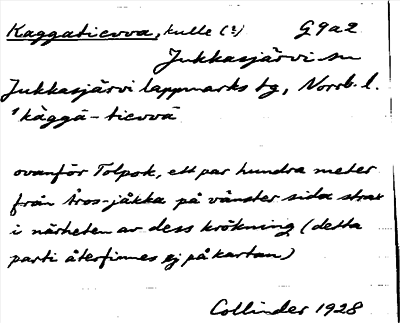 Kaggatievva, kulle (?) G9a2
Jukkasjärvi sn
Jukkasjärvi lappmarks tg, Norrb. l.
'kaggā-tievvā
ovanför Tolpok, ett par hundra meter
från Åros-jåkka på vänster sida strax
i närheten av dess krökning (detta
parti återfinnes ej på kartan)
Collinder 1928